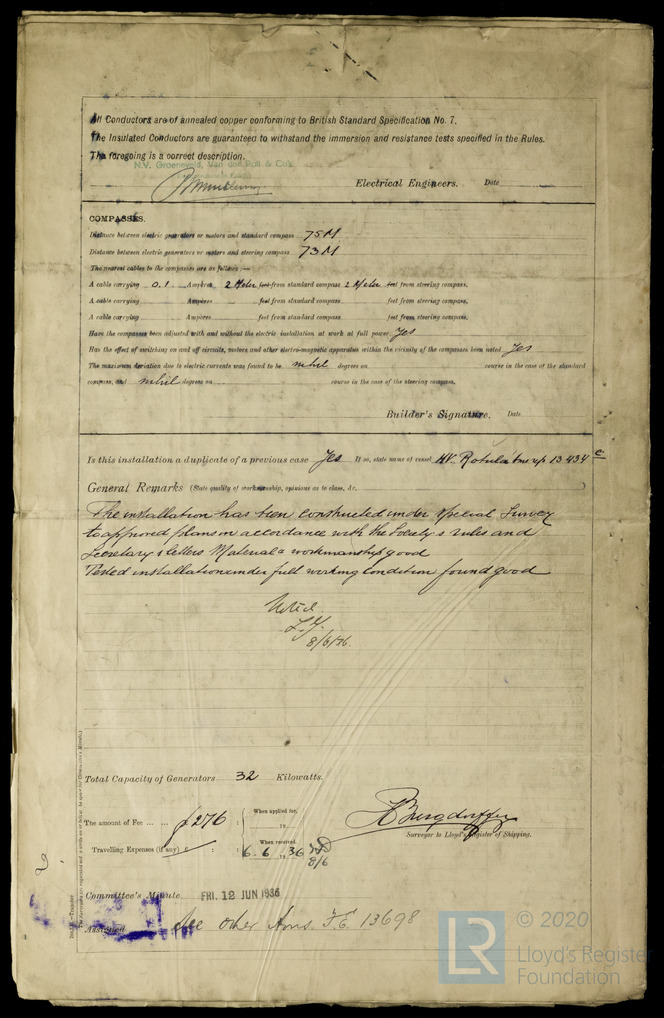 All Conductors are of annealed copper conforming to British Standard Specification No. 7.
The Insulated Conductors are guaranteed to withstand the immersion and resistance tests specified in the Rules.
The foregoing is a correct description.
N.V. Groeneveld, Van der Poll & Co's
Electrical Engineers. Date
COMPASSES.
Distance between electric generators or motors and standard compass 75 M
Distance between electric generators or motors and steering compass 73 M
The nearest cables to the compasses are as follows:—
A cable carrying 0.1 Ampères 2 Meter feet from standard compass 2 Meter feet from steering compass.
A cable carrying Ampères feet from standard compass feet from steering compass.
A cable carrying Ampères feet from standard compass feet from steering compass.
Have the compasses been adjusted with and without the electric installation at work at full power Yes
Has the effect of switching on and off circuits, motors and other electro-magnetic apparatus within the vicinity of the compasses been noted Yes
The maximum deviation due to electric currents was found to be nihil degrees on course in the case of the standard
compass, and nihil degrees on course in the case of the steering compass.
Builder's Signature. Date
Is this installation a duplicate of a previous case Yes If so, state name of vessel M.V. Rotula 13434 c
General Remarks (State quality of workmanship, opinions as to class, &c.)
The installation has been constructed under special Survey
to approved plans in accordance with the Society's rules and
Secretary's letters Material & workmanship good
Tested installation under full working condition found good
Noted
8/6/36.
Total Capacity of Generators 32 Kilowatts.
The amount of Fee ... ... ƒ276 : When applied for,
19
Travelling Expenses (if any) £ : : When received,
6.6 19 36
8/6
A Burgdorffer
Surveyor to Lloyd's Register of Shipping.
Committee's Minute FRI. 12 JUN 1936
Assigned See other Ams. F.E. 13698
© 2020
LR
Lloyd's Register
Foundation